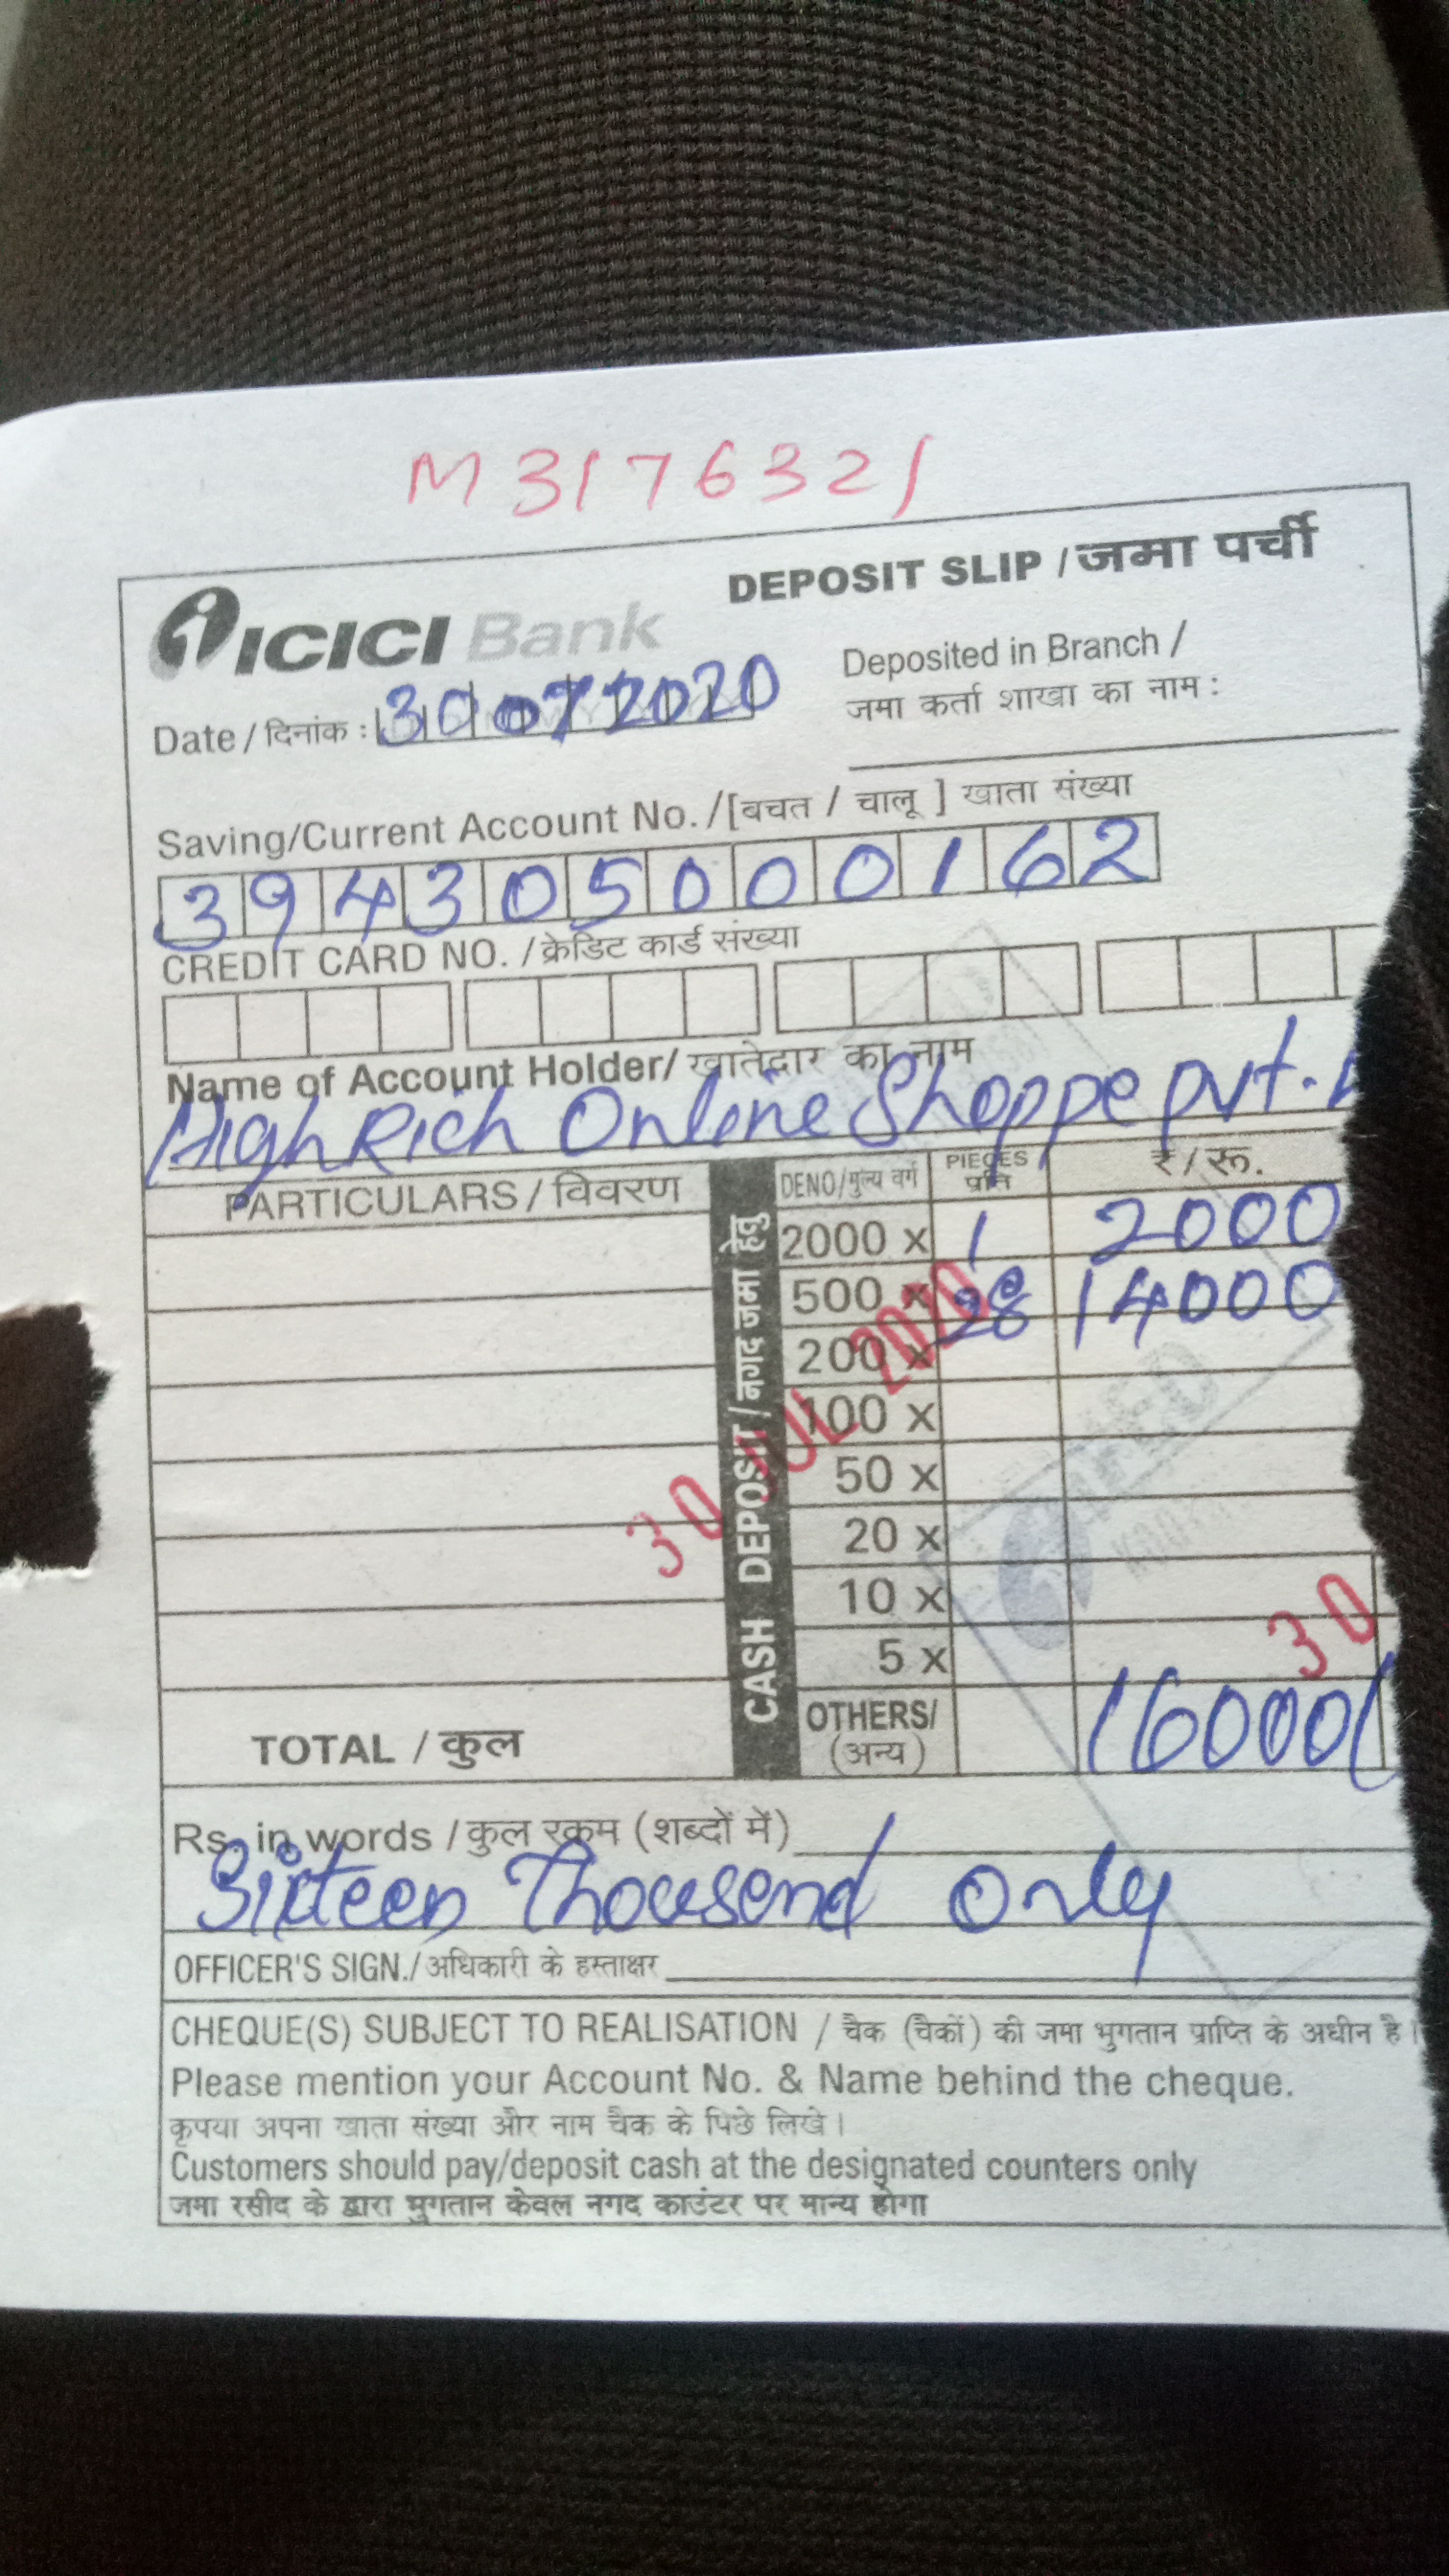 M3176321
ICICI Bank
DEPOSIT SLIP / जमा पर्ची
Date / दिनांक : 30072020
Deposited in Branch /
जमा कर्ता शाखा का नाम :
Saving/Current Account No. / [बचत / चालू ] खाता संख्या
394305000162
CREDIT CARD NO. / क्रेडिट कार्ड संख्या
Name of Account Holder/ खातेदार का नाम
HighRich Online Shoppe pvt.
PARTICULARS / विवरण
CASH DEPOSIT / नगद जमा हेतु
DENO/मुल्य वर्ग PIECES प्रति ₹ / रू.
2000 x 1 2000
500 x 28 14000
200 x
100 x
50 x
20 x
10 x
5 x
30 JUL 2020
30
TOTAL / कुल OTHERS/ (अन्य) 16000
Rs. in words / कुल रकम (शब्दों में)
Sixteen Thousend Only
OFFICER'S SIGN./ अधिकारी के हस्ताक्षर
CHEQUE(S) SUBJECT TO REALISATION / चैक (चैकों) की जमा भुगतान प्राप्ति के अधीन है।
Please mention your Account No. & Name behind the cheque.
कृपया अपना खाता संख्या और नाम चैक के पिछे लिखे।
Customers should pay/deposit cash at the designated counters only
जमा रसीद के द्वारा भुगतान केवल नगद काउंटर पर मान्य होगा